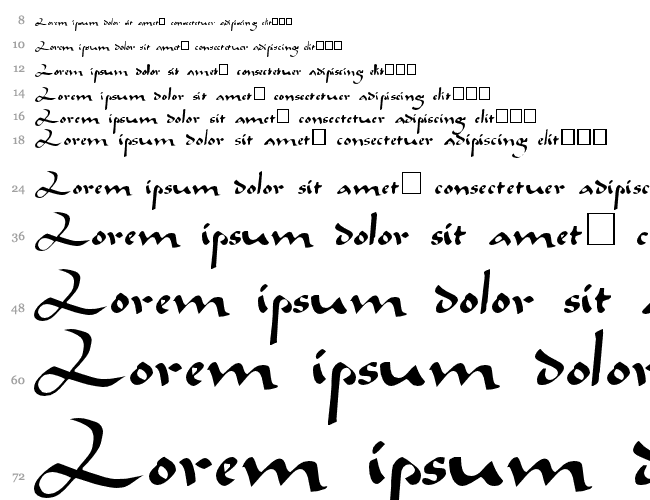 8 Lorem ipsum dolor sit amet□ consectetuer adipiscing elit□□□
10 Lorem ipsum dolor sit amet□ consectetuer adipiscing elit□□□
12 Lorem ipsum dolor sit amet□ consectetuer adipiscing elit□□□
14 Lorem ipsum dolor sit amet□ consectetuer adipiscing elit□□□
16 Lorem ipsum dolor sit amet□ consectetuer adipiscing elit□□□
18 Lorem ipsum dolor sit amet□ consectetuer adipiscing elit□□□
24 Lorem ipsum dolor sit amet□ consectetuer adipisc
36 Lorem ipsum dolor sit amet□ c
48 Lorem ipsum dolor sit
60 Lorem ipsum dolor
72 Lorem ipsum d